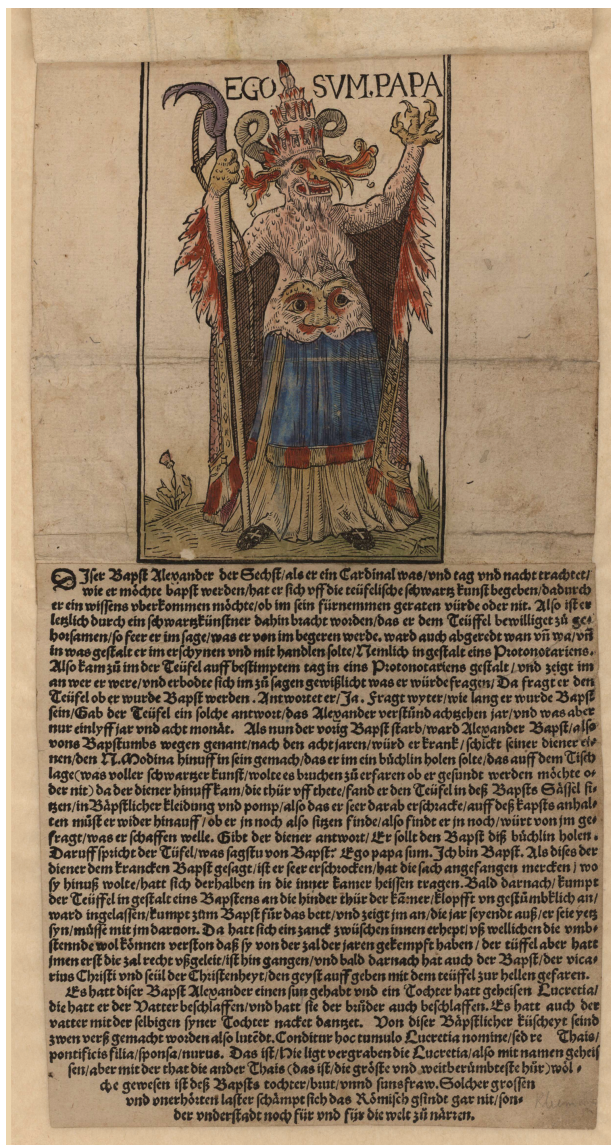 EGO SVM.PAPA
DIser Bapst Alexander der Sechst/als er ein Cardinal was/vnd tag vnd nacht trachtet/
wie er möchte bapst werden/hat er sich vff die teüfelische schwartz kunst begeben/dadurch
er ein wissens vberkommen möchte/ob im sein fürnemmen geraten würde oder nit. Also ist er
letzlich durch ein schwartzkünstner dahin bracht worden/das er dem Teüffel bewilliget zů ge-
horsamen/so feer er im sage/was er von im begeren werde. ward auch abgeredt wan vñ wa/vñ
in was gestalt er im erschynen vnd mit handlen solte/Nemlich in gestalt eins Protonotariens.
Also kam zů im der Teüfel auff bestimptem tag in eins Protonotariens gestalt/vnd zeigt im
an wer er were/vnd erbodte sich im zů sagen gewißlicht was er würde fragen/Da fragt er den
Teüfel ob er wurde Bapst werden. Antwortet er/Ja. Fragt wyter/wie lang er wurde Bapst
sein/Gab der Teüfel ein solche antwort/das Alexander verstünd achtzehen jar/vnd was aber
nur einlyff jar vnd acht monát. Als nun der vorig Bapst starb/ward Alexander Bapst/also
vons Bapstumbs wegen genant/nach den acht jaren/würd er kranck/schickt seiner diener ei-
nen/den N. Modina hinuff in sein gemach/das er im ein büchlin holen solte/das auff dem Tisch
lage(was voller schwartzer kunst/wolte es bruchen zů erfaren ob er gesundt werden möchte o-
der nit) da der diener hinuff kam/die thür vff thete/fand er den Teüfel in deß Bapsts Sässel si-
tzen/in Bäpstlicher kleidung vnd pomp/also das er seer darab erschracke/auff deß bapsts anhal-
ten müst er wider hinauff/ob er jn noch also sitzen finde/also findt er jn noch/würt von jm ge-
fragt/was er schaffen welle. Gibt der diener antwort/Er sollt den Bapst diß büchlin holen.
Daruff spricht der Tüfel/was sagstu von Bapst: Ego papa sum. Ich bin Bapst. Als dises der
diener dem krancken Bapst gesagt/ist er seer erschrocken/hat die sach angefangen mercken/wo
sy hinuß wolte/hatt sich derhalben in die inner kamer heissen tragen. Bald darnach/kumpt
der Teüffel in gestalt eins Bapstens an die hinder thür der kam̃er/klopfft vn gestümbklich an/
ward ingelassen/kumpt zům Bapst für das bett/vnd zeigt jm an/die jar seyendt auß/er seie yetz
syn/müsse mit jm daruon. Da hatt sich ein zanck zwüschen innen erhept/vß wellichen die vmb-
stennde wol können verston daß sy von der zal der jaren gekempft haben/der tüffel aber hatt
jmen erst die zal recht vßgeleit/ist hin gangen/vnd bald darnach hat auch der Bapst/der vica-
rius Christi vnd seül der Christenheyt/den geyst auff geben mit dem teüffel zur hellen gefaren.
Es hatt diser Bapst Alexander einen sun gehabt vnd ein Tochter hatt geheisen Lucretia/
die hatt er der Vatter beschlaffen/vnd hatt sie der brůder auch beschlaffen. Es hatt auch der
vatter mit der selbigen syner Tochter nacket dantzet. Von diser Bäpstlicher küscheyt seind
zwen verß gemacht worden also lutēdt. Conditur hoc tumulo Lucretia nomine/sed re Thais/
pontificis filia/sponsa/nurus. Das ist/Hie ligt vergraben die Lucretia/also mit namen geheis
sen/aber mit der that die ander Thais (das ist/die gröste vnd weitberümbteste hůr) wöl-
che gewesen ist deß Bapsts tochter/brut/vnnd sunsfraw. Solcher grossen
vnd vnerhörten laster schämpt sich das Römisch gsindt gar nit/son-
der vnderstadt noch für vnd für die welt zů narren.